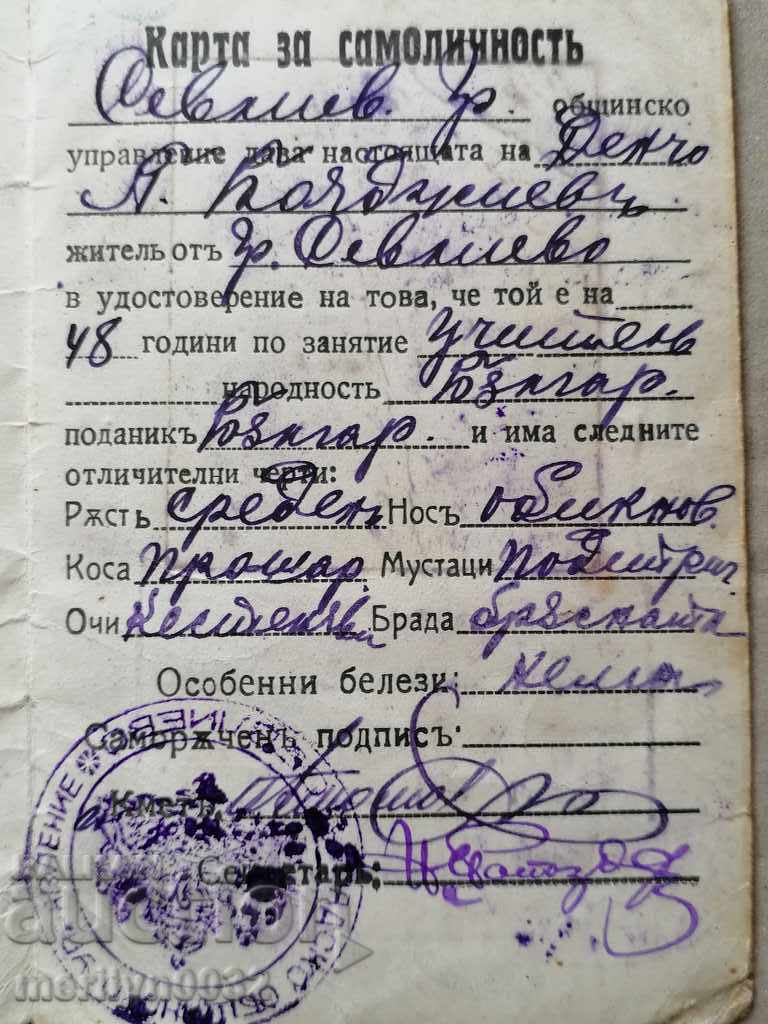 Карта за самоличность
Севлиев. гр. общинско
управление дава настоящата на Денчо
П. Бояджиевъ
житель отъ гр. Севлиево
в удостоверение на това, че той е на
48 години по занятие учитель
народность бѫлгар.
поданикъ бѫлгар. и има следните
отличителни черти:
Рѫсть среденъ Носъ обикнов.
Коса прошар. Мустаци подстриг
Очи кестеняви Брада брѣсната
Особенни белези: нема
Саморѫченъ подпись:
Кметъ,
Секретарь:
merilyn0032